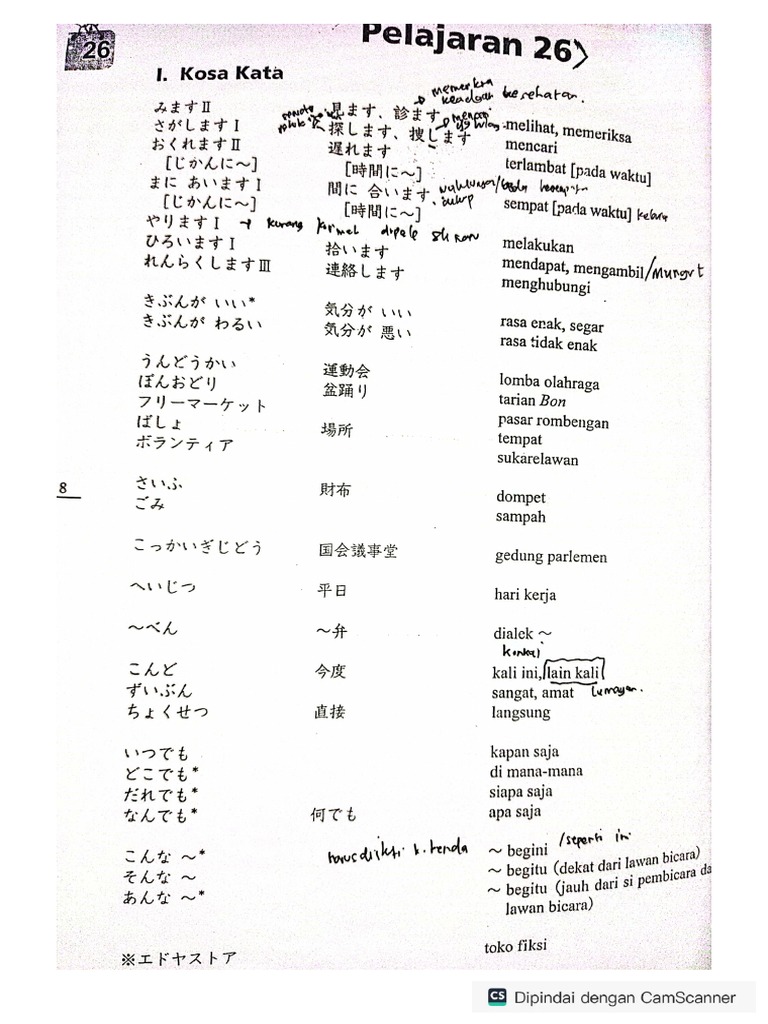 26
Pelajaran 26
I. Kosa Kata
みますⅡ 見ます、診ます melihat, memeriksa
memeriksa keadaan kesehatan.
さがしますⅠ 探します、捜します mencari
おくれますⅡ 遅れます terlambat [pada waktu]
[じかんに～] [時間に～]
まに あいますⅠ 間に 合います sempat [pada waktu]
[じかんに～] [時間に～]
やりますⅠ → kurang formal melakukan
ひろいますⅠ 拾います mendapat, mengambil/mungut
れんらくしますⅢ 連絡します menghubungi
きぶんが いい* 気分が いい rasa enak, segar
きぶんが わるい 気分が 悪い rasa tidak enak
うんどうかい 運動会 lomba olahraga
ぼんおどり 盆踊り tarian Bon
フリーマーケット pasar rombengan
ばしょ 場所 tempat
ボランティア sukarelawan
8
さいふ 財布 dompet
ごみ sampah
こっかいぎじどう 国会議事堂 gedung parlemen
へいじつ 平日 hari kerja
～べん ～弁 dialek ～
konkai
こんど 今度 kali ini, lain kali
ずいぶん sangat, amat lumayan.
ちょくせつ 直接 langsung
いつでも kapan saja
どこでも* di mana-mana
だれでも* siapa saja
なんでも* 何でも apa saja
こんな ～* harus diikuti k. benda ～ begini /seperti ini
そんな ～ ～ begitu (dekat dari lawan bicara)
あんな ～* ～ begitu (jauh dari si pembicara da
lawan bicara)
※エドヤストア toko fiksi
CS Dipindai dengan CamScanner